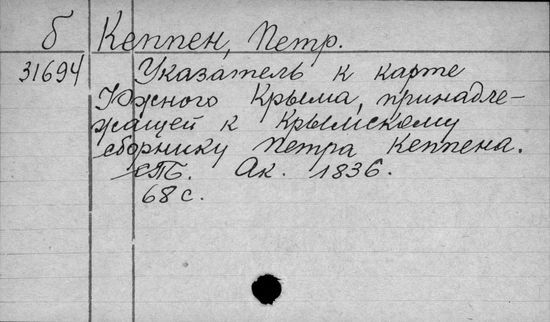 б Кеппен, Петр.
31694 Указатель к карте
Южного Крыма, принадле-
жащей к Крымскому
сборнику Петра Кеппена.
СПб. Ак. 1836.
68 с.